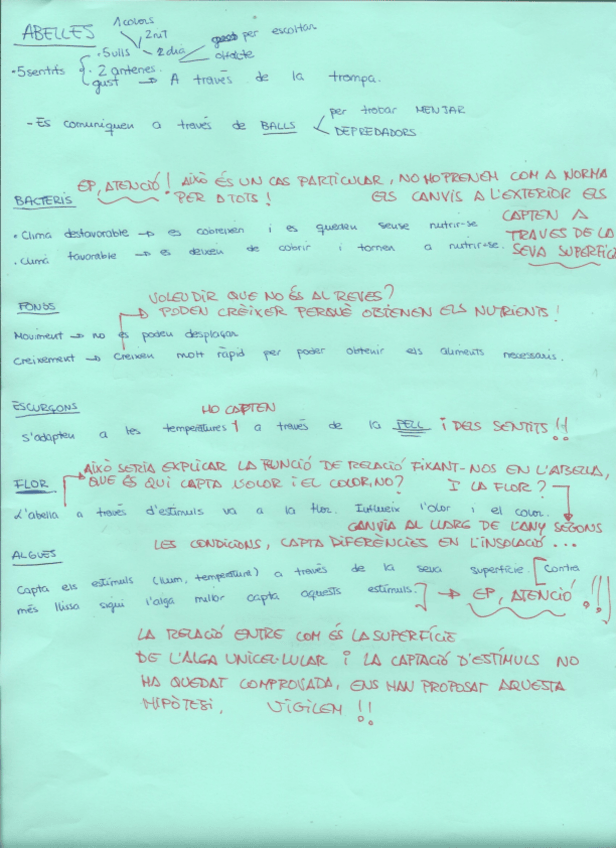 ABELLES
1 colors
2 nit
· 5 ulls
2 dia
per escoltar
olfacte
· 5 sentits
· 2 antenes.
gust → A través de la trompa.
- Es comuniquen a través de BALLS
per trobar MENJAR
DEPREDADORS
EP, ATENCIÓ! AIXÒ ÉS UN CAS PARTICULAR, NO HO PRENEM COM A NORMA
PER A TOTS!
BACTERIS
ELS CANVIS A L'EXTERIOR ELS
CAPTEN A
TRAVES DE LA
SEVA SUPERFÍCIE
· Clima desfavorable → es cobreixen i es queden sense nutrir-se
· Clima favorable → es deixen de cobrir i tornen a nutrir-se.
VOLEU DIR QUE NO ÉS AL REVES?
FONGS
PODEN CRÈIXER PERQUÈ OBTENEN ELS NUTRIENTS!
Moviment → no es poden desplaçar
Creixement → Creixen molt ràpid per poder obtenir els aliments necessaris.
ESCURÇONS
HO CAPTEN
S'adapten a les temperatures ↑ a través de la PELL I DELS SENTITS!!
AIXÒ SERIA EXPLICAR LA FUNCIÓ DE RELACIÓ FIXANT-NOS EN L'ABELLA,
QUE ÉS QUI CAPTA L'OLOR I EL COLOR, NO? I LA FLOR?
FLOR
L'abella a través d'estímuls va a la flor. Influeix l'olor i el color.
CANVIA AL LLARG DE L'ANY SEGONS
LES CONDICIONS, CAPTA DIFERÈNCIES EN L'INSOLACIÓ...
ALGUES
Capta els estímuls (llum, temperatura) a través de la seva superfície. [Contra
més llisa sigui l'alga millor capta aquests estímuls.] → EP, ATENCIÓ!!!
LA RELACIÓ ENTRE COM ÉS LA SUPERFÍCIE
DE L'ALGA UNICEL·LULAR I LA CAPTACIÓ D'ESTÍMULS NO
HA QUEDAT COMPROVADA, ENS HAN PROPOSAT AQUESTA
HIPÒTESI, VIGILEM!!